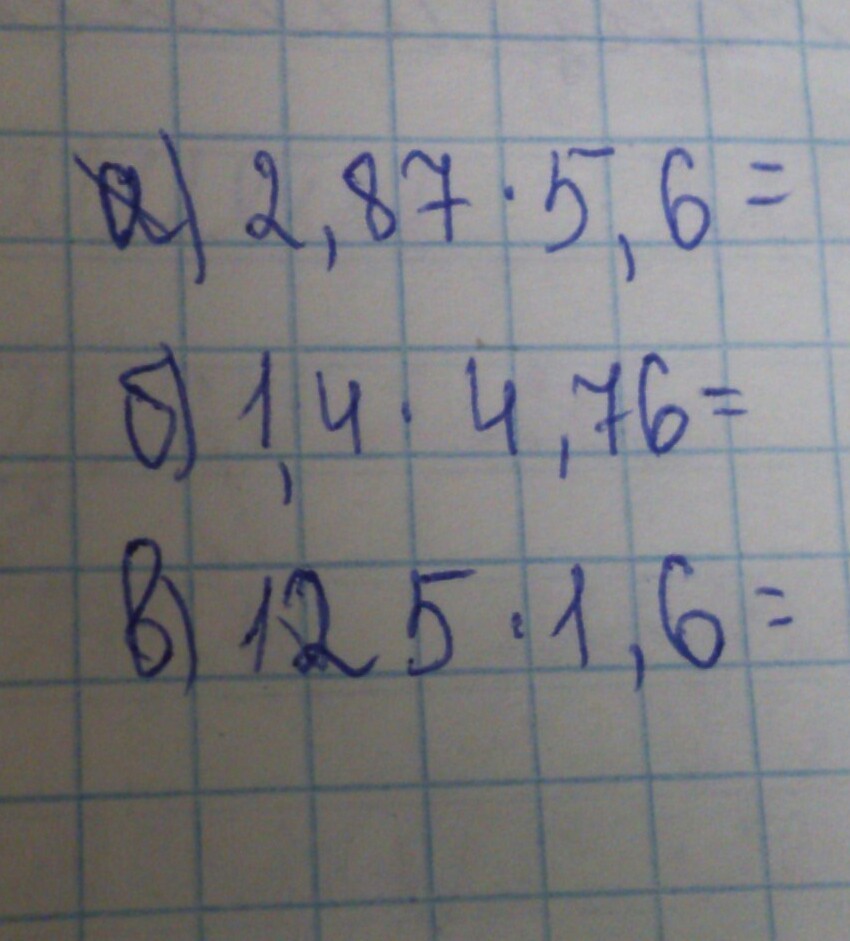 а) 2,87·5,6=
б) 1,4·4,76=
в) 125·1,6=